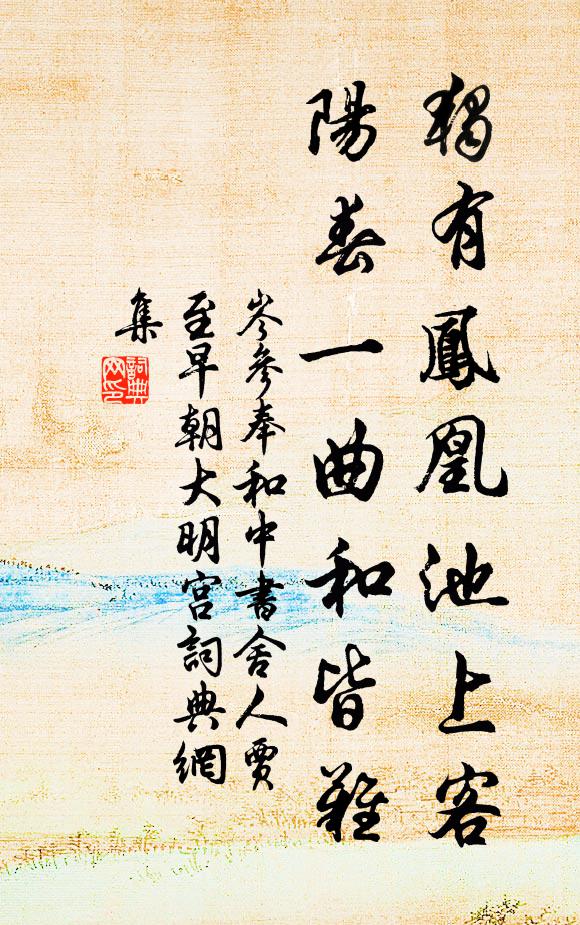 獨有鳳凰池上客
陽春一曲和皆難
岑參奉和中書舍人賈
至早朝大明宮詞典網
集
詞典
網印